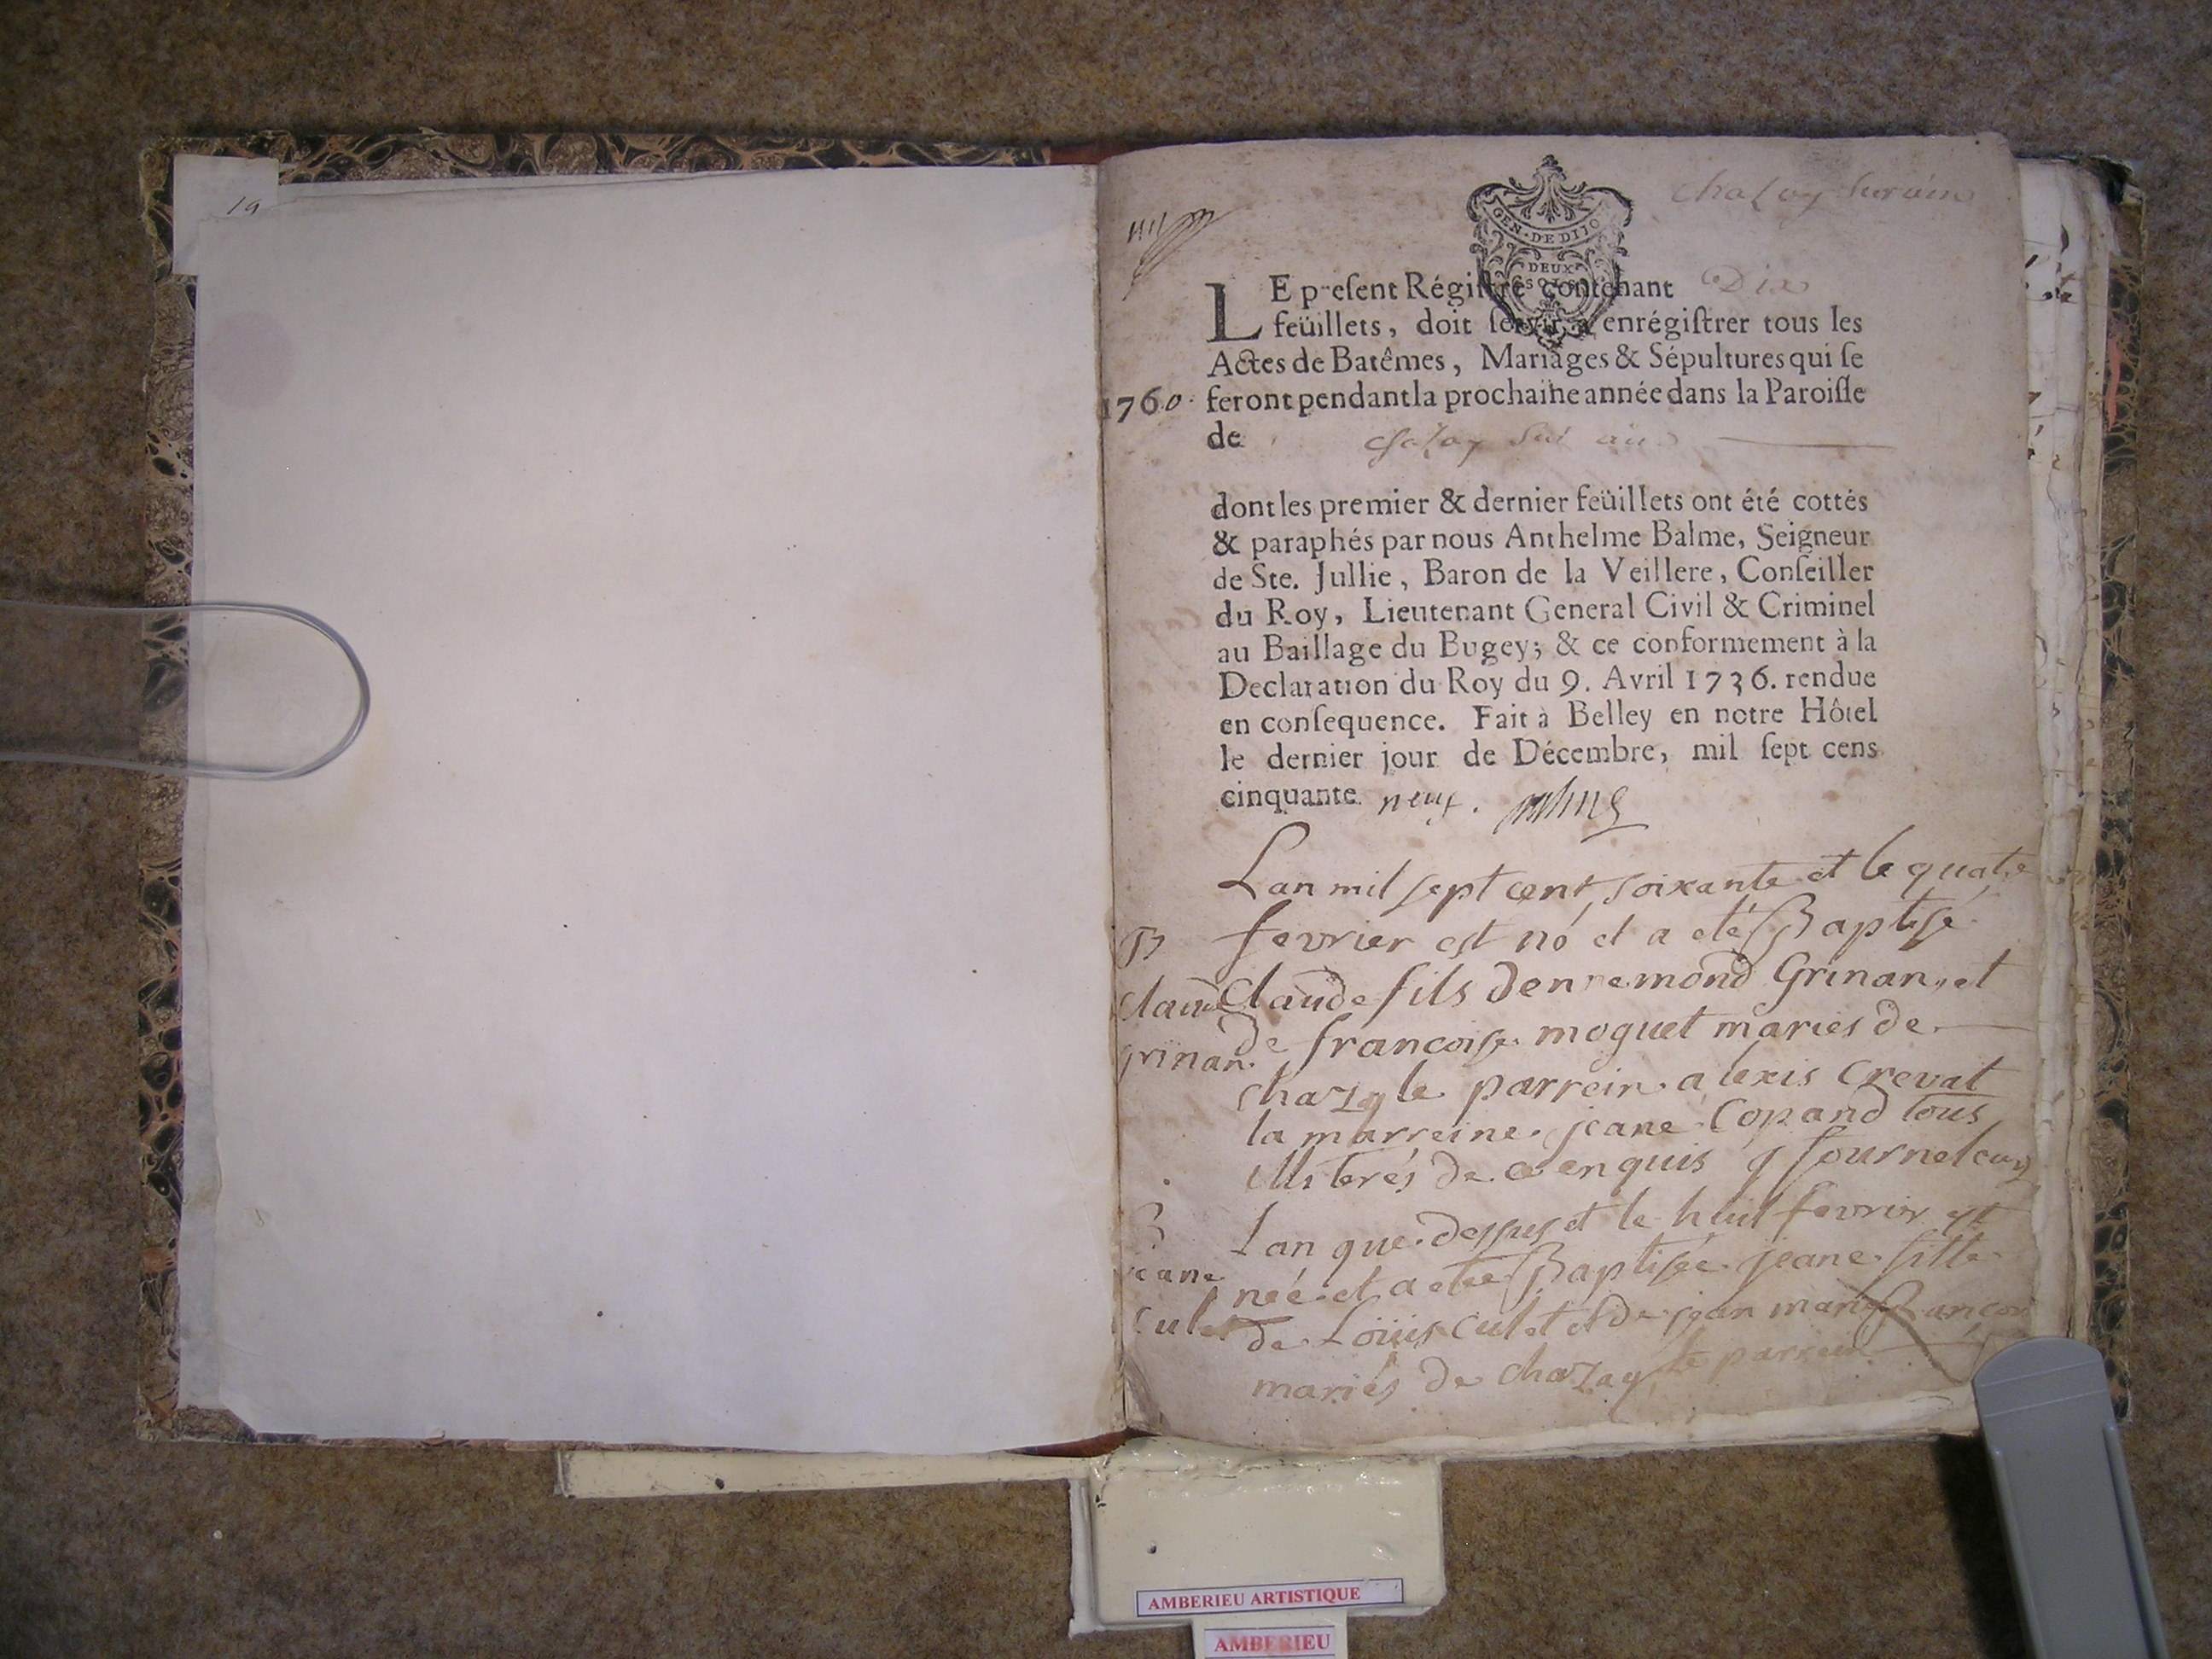 19
chazay sur ain
GEN. DE DIJO
DEUX
SOLS
LE present Régistre contenant Dix
feüillets, doit servir a enrégistrer tous les
Actes de Batêmes, Mariages & Sépultures qui se
1760. feront pendant la prochaine année dans la Paroisse
de chazay sur ain
dont les premier & dernier feüillets ont été cottés
& paraphés par nous Anthelme Balme, Seigneur
de Ste. Jullie, Baron de la Veillere, Conseiller
du Roy, Lieutenant General Civil & Criminel
au Baillage du Bugey; & ce conformement à la
Declaration du Roy du 9. Avril 1736. rendue
en consequence. Fait à Belley en notre Hôtel
le dernier jour de Décembre, mil sept cens
cinquante neuf. Balme
Lan mil sept cent soixante et le quatre
B fevrier est né et a eté Baptisé
Claude Claude fils denremond Grinan et
grinan de francoise moguet mariés de
chazay le parrein alexis Crevat
la marreine jeane Copand tous
illiterés de ce enquis fournel curé
B Lan que dessus et le huit fevrier est
jeane née et a etée Baptisée jeane fille
Culet de Loüis Culet et de jean marie françoi
mariés de chazay le parrein
AMBERIEU ARTISTIQUE
AMBERIEU